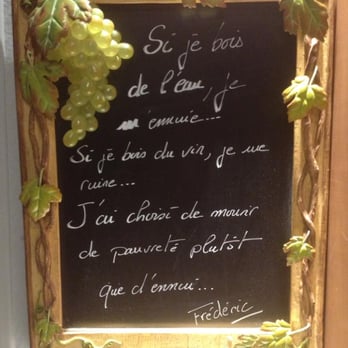 Si je bois
de l'eau, je
m'ennuie...
Si je bois du vin, je me
ruine...
J'ai choisi de mourir
de pauvreté plutôt
que d'ennui...
Frédéric